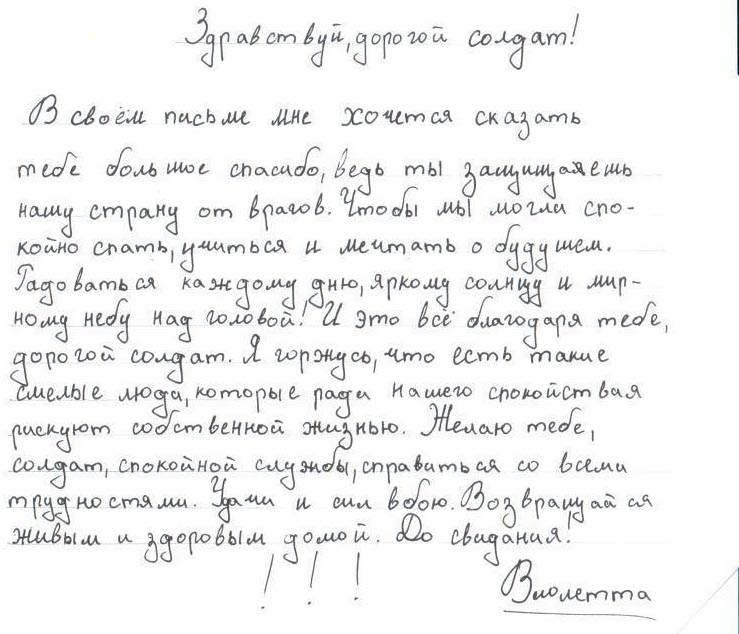 Здравствуй, дорогой солдат!
В своём письме мне хочется сказать
тебе большое спасибо, ведь ты защищаешь
нашу страну от врагов. Чтобы мы могли спо-
койно спать, учиться и мечтать о будущем.
Радоваться каждому дню, яркому солнцу и мир-
ному небу над головой! И это всё благодаря тебе,
дорогой солдат. Я горжусь, что есть такие
смелые люди, которые ради нашего спокойствия
рискуют собственной жизнью. Желаю тебе,
солдат, спокойной службы, справиться со всеми
трудностями. Удачи и сил в бою. Возвращайся
живым и здоровым домой. До свидания!
! ! !
Виолетта